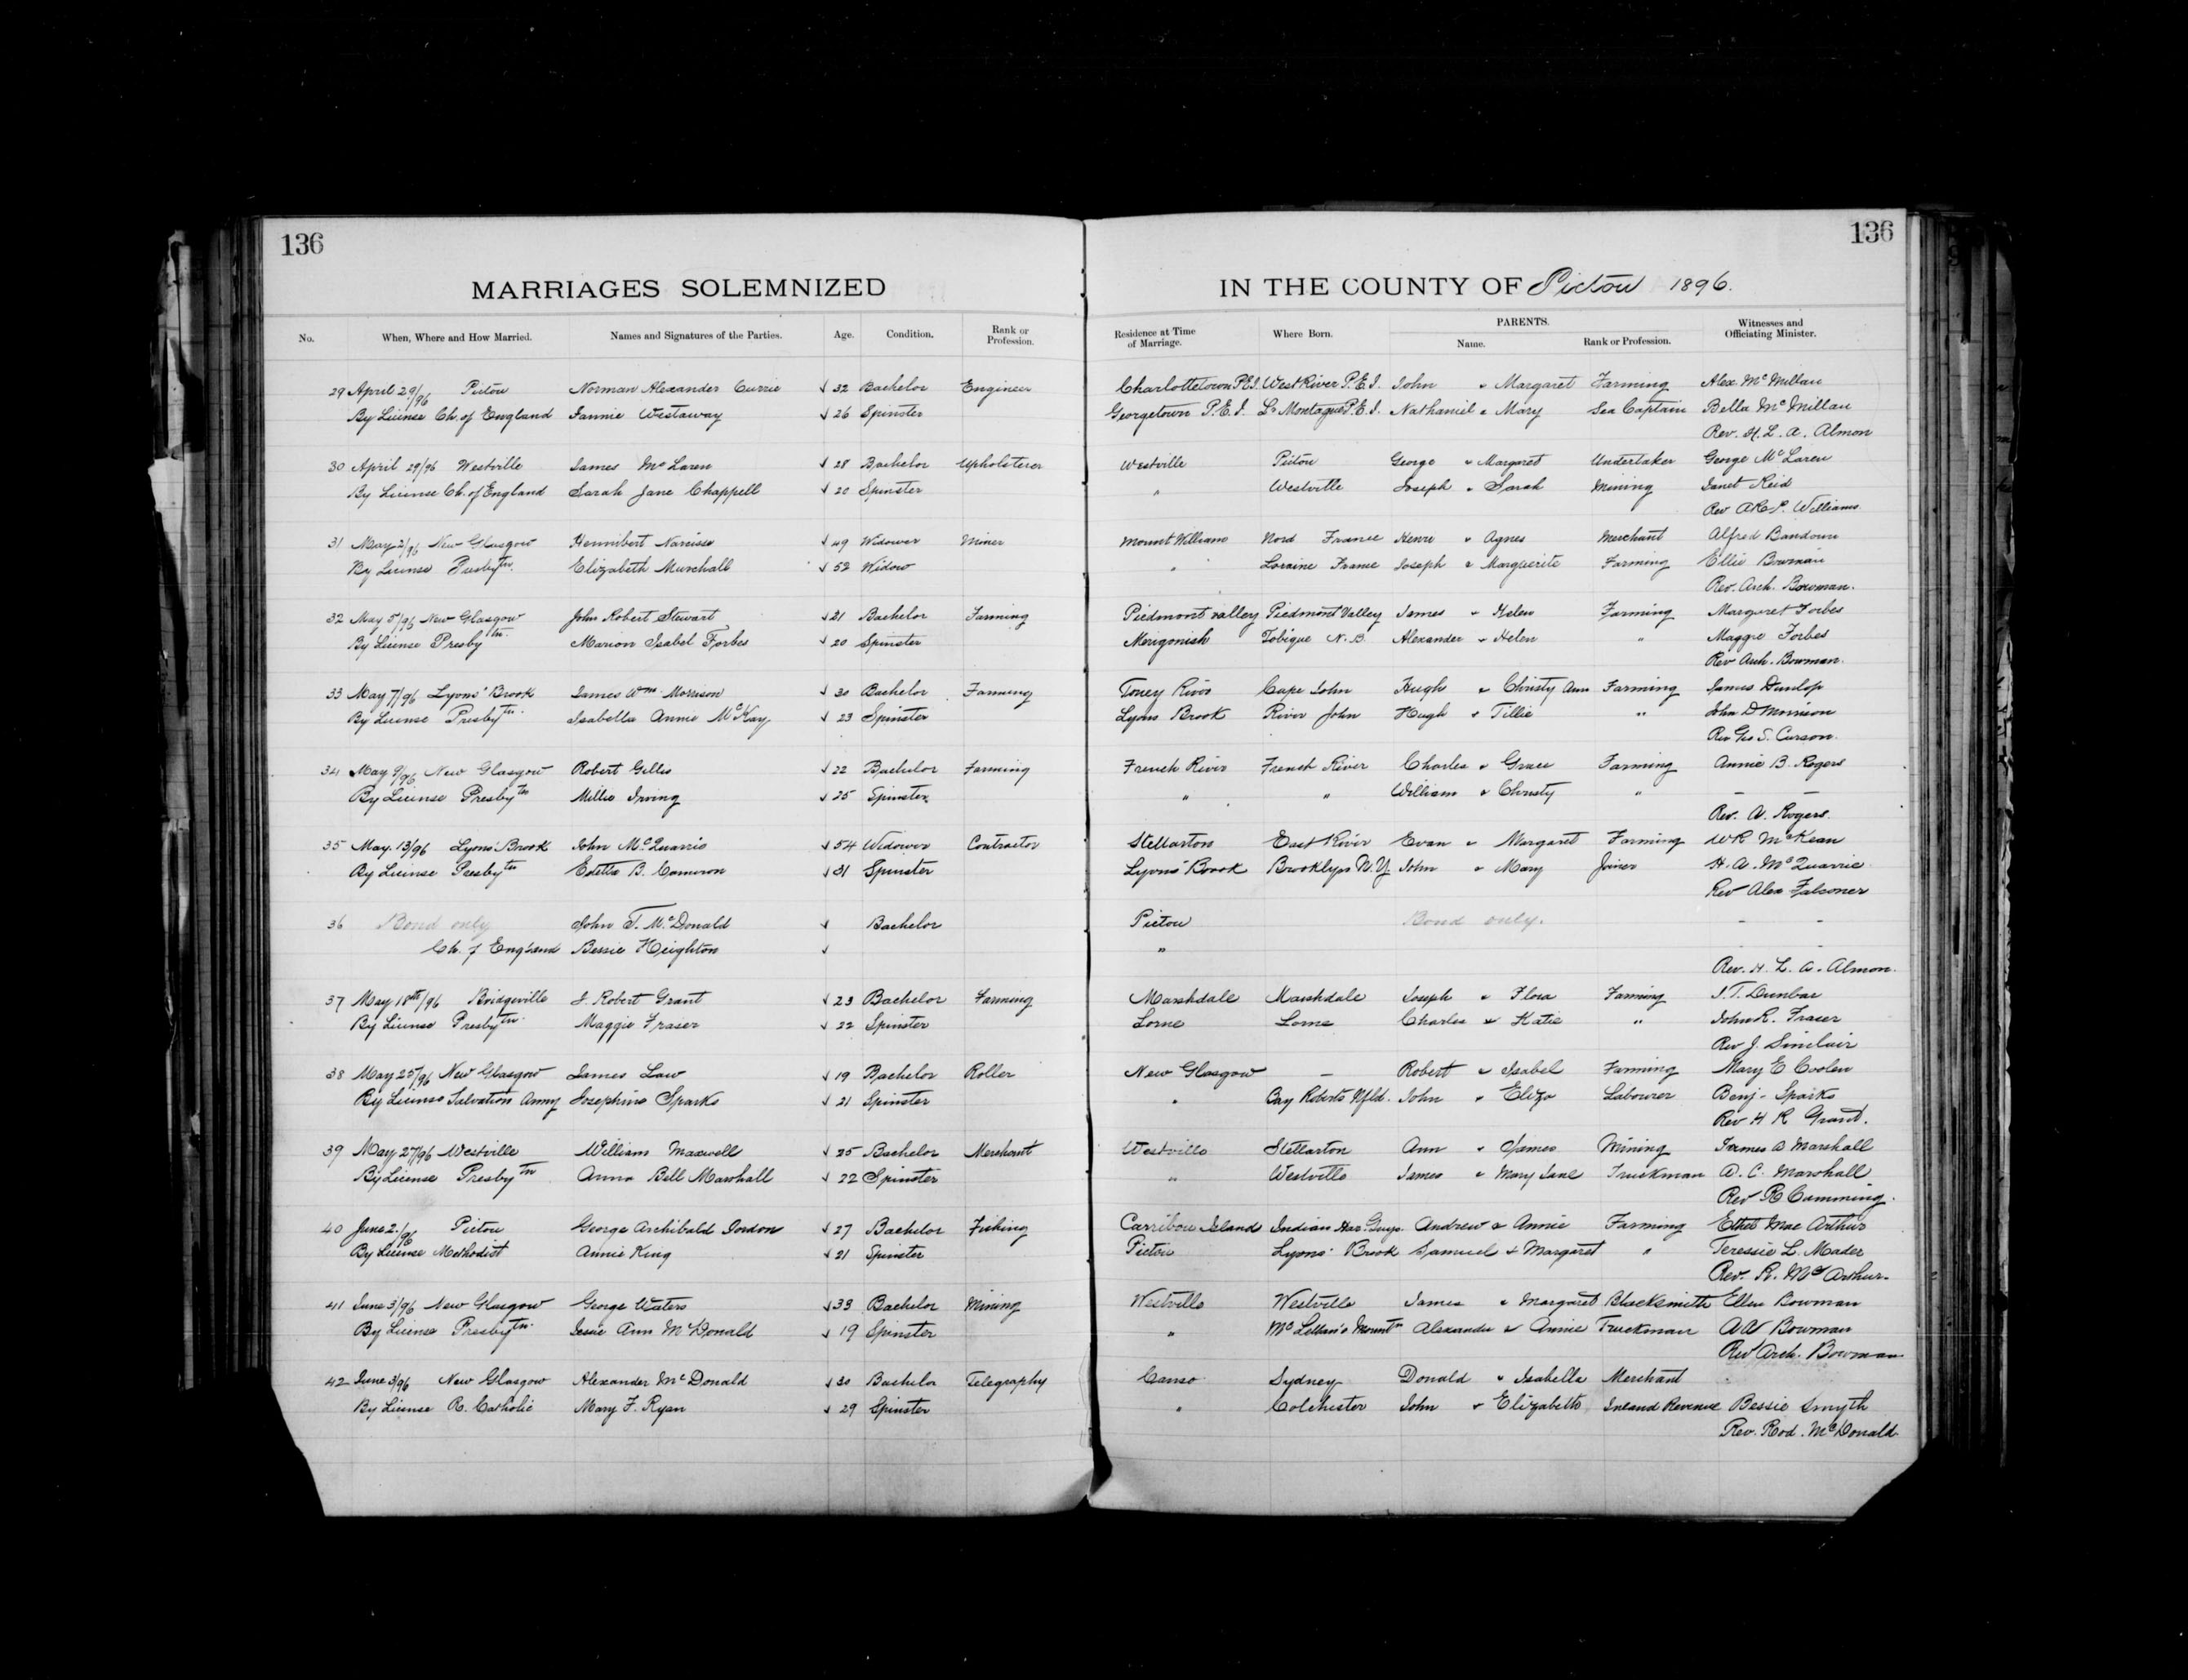 136
136
MARRIAGES SOLEMNIZED IN THE COUNTY OF Pictou 1896.
No. When, Where and How Married. Names and Signatures of the Parties. Age. Condition. Rank or Profession. Residence at Time of Marriage. Where Born. PARENTS. Name. Rank or Profession. Witnesses and Officiating Minister.
29 April 29/96 Pictou Norman Alexander Currie √ 32 Bachelor Engineer Charlottetown P.E.I. West River P.E.I. John & Margaret Farming Alex. McMillan
By License Ch. of England Fannie Westaway √ 26 Spinster Georgetown P.E.I. Lr Montague P.E.I. Nathaniel & Mary Sea Captain Bella McMillan
Rev. H. L. A. Almon
30 April 29/96 Westville James McLaren √ 28 Bachelor Upholsterer Westville Pictou George & Margaret Undertaker George McLaren
By License Ch. of England Sarah Jane Chappell √ 20 Spinster " Westville Joseph & Sarah Mining Janet Reid
Rev Williams.
31 May 2/96 New Glasgow Hennibert Narcisse √ 49 Widower Miner Mount William Nord France Henri & Agnes Merchant Alfred
By License Presbytn. Elizabeth Murchall √ 52 Widow " Loraine France Joseph & Marguerite Farming Ellie Bowman
Rev. Arch. Bowman.
32 May 5/96 New Glasgow John Robert Stewart √ 21 Bachelor Farming Piedmont Valley Piedmont Valley James & Helen Farming Margaret Forbes
By License Presbytn. Marion Isabel Forbes √ 20 Spinster Merigomish Tobique N.B. Alexander & Helen " Maggie Forbes
Rev Arch. Bowman.
33 May 7/96 Lyons' Brook James Wm. Morrison √ 30 Bachelor Farming Toney River Cape John Hugh & Christy Ann Farming James Dunlop
By License Presbytn. Isabella Annie McKay √ 23 Spinster Lyons Brook River John Hugh & Tillie " John D Morrison
Rev Geo S. Carson.
34 May 9/96 New Glasgow Robert Gillis √ 22 Bachelor Farming French River French River Charles & Grace Farming Annie B. Rogers
By License Presbytn Millie Irving √ 25 Spinster " " William & Christy " - -
Rev. A. Rogers.
35 May. 13/96 Lyons' Brook John McQuarrie √ 54 Widower Contractor Stellarton East River Evan & Margaret Farming W R McKean
By License Presbytn Edetta B. Cameron √ 31 Spinster Lyons' Brook Brooklyn N.Y. John & Mary Joiner H. A. McQuarrie
Rev Alex Falconer
36 Bond only John T. McDonald √ Bachelor Pictou Bond only. - -
Ch. of England Bessie Heighton √ " - -
Rev. H. L. A. Almon.
37 May 18th/96 Bridgeville J. Robert Grant √ 23 Bachelor Farming Marshdale Marshdale Joseph & Flora Farming J. T. Dunbar
By License Presbytn. Maggie Fraser √ 22 Spinster Lorne Lorne Charles & Katie " John R. Fraser
Rev J. Sinclair
38 May 25/96 New Glasgow James Law √ 19 Bachelor Roller New Glasgow - Robert & Isabel Farming Mary E Coolen
By License Salvation Army Josephine Sparks √ 21 Spinster " Bay Roberts Nfld. John & Eliza Labourer Benj. Sparks
Rev H R Grand.
39 May 27/96 Westville William Maxwell √ 25 Bachelor Merchant Westville Stellarton Ann & James Mining James D Marshall
By License Presbytn Anna Bell Marshall √ 22 Spinster " Westville James & Mary Jane Truckman A. C. Marshall
Rev R Cumming.
40 June 2./96 Pictou George Archibald Gordon √ 27 Bachelor Fishing Carribou Island Indian Har. Guys. Andrew & Annie Farming Ethel Mac Arthur
By License Methodist Annie King √ 21 Spinster Pictou Lyons' Brook Samuel & Margaret " Teressie L. Mader
Rev. R. McArthur.
41 June 3/96 New Glasgow George Waters √ 33 Bachelor Mining Westville Westville James & Margaret Blacksmith Ellen Bowman
By License Presbytn. Jessie Ann McDonald √ 19 Spinster " McLellan's Mountn Alexander & Annie Truckman A W Bowman
Rev Arch. Bowman
42 June 3/96 New Glasgow Alexander McDonald √ 30 Bachelor Telegraphy Canso Sydney Donald & Isabella Merchant
By License R. Catholic Mary F. Ryan √ 29 Spinster " Colchester John & Elizabeth Inland Revenue Bessie Smyth
Rev. Rod. McDonald